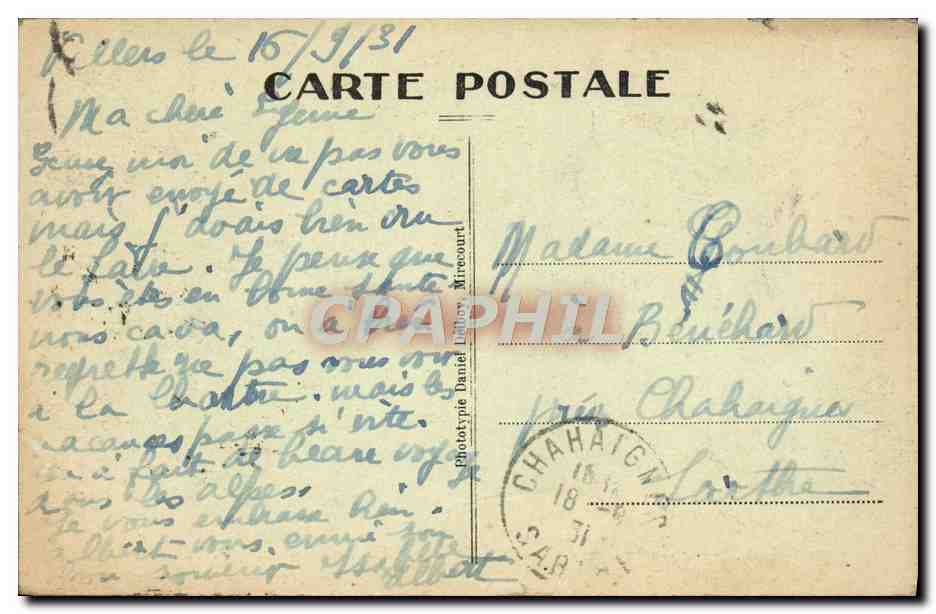 Villers le 16/9/31
CARTE POSTALE
Ma chère
moi de ne pas vous
avoir envoyé de cartes
mais j'avais bien
le faire. Je pense que
vous êtes en bonne santé
nous ça va, on a bien
regretté que pas vous voir
à la Chartre. mais les
vacances passe si vite.
on a fait de beau voyage
dans les alpes
Je vous embrasse bien.
Albert vous envoi son
bon souvenir
Albert
Phototypie Daniel Delboy, Mirecourt
Madame Coubard
à Bénéhard
près Chahaignes
Sarthe
CHAHAIGNES
18
31
SARTHE
CPAPHIL